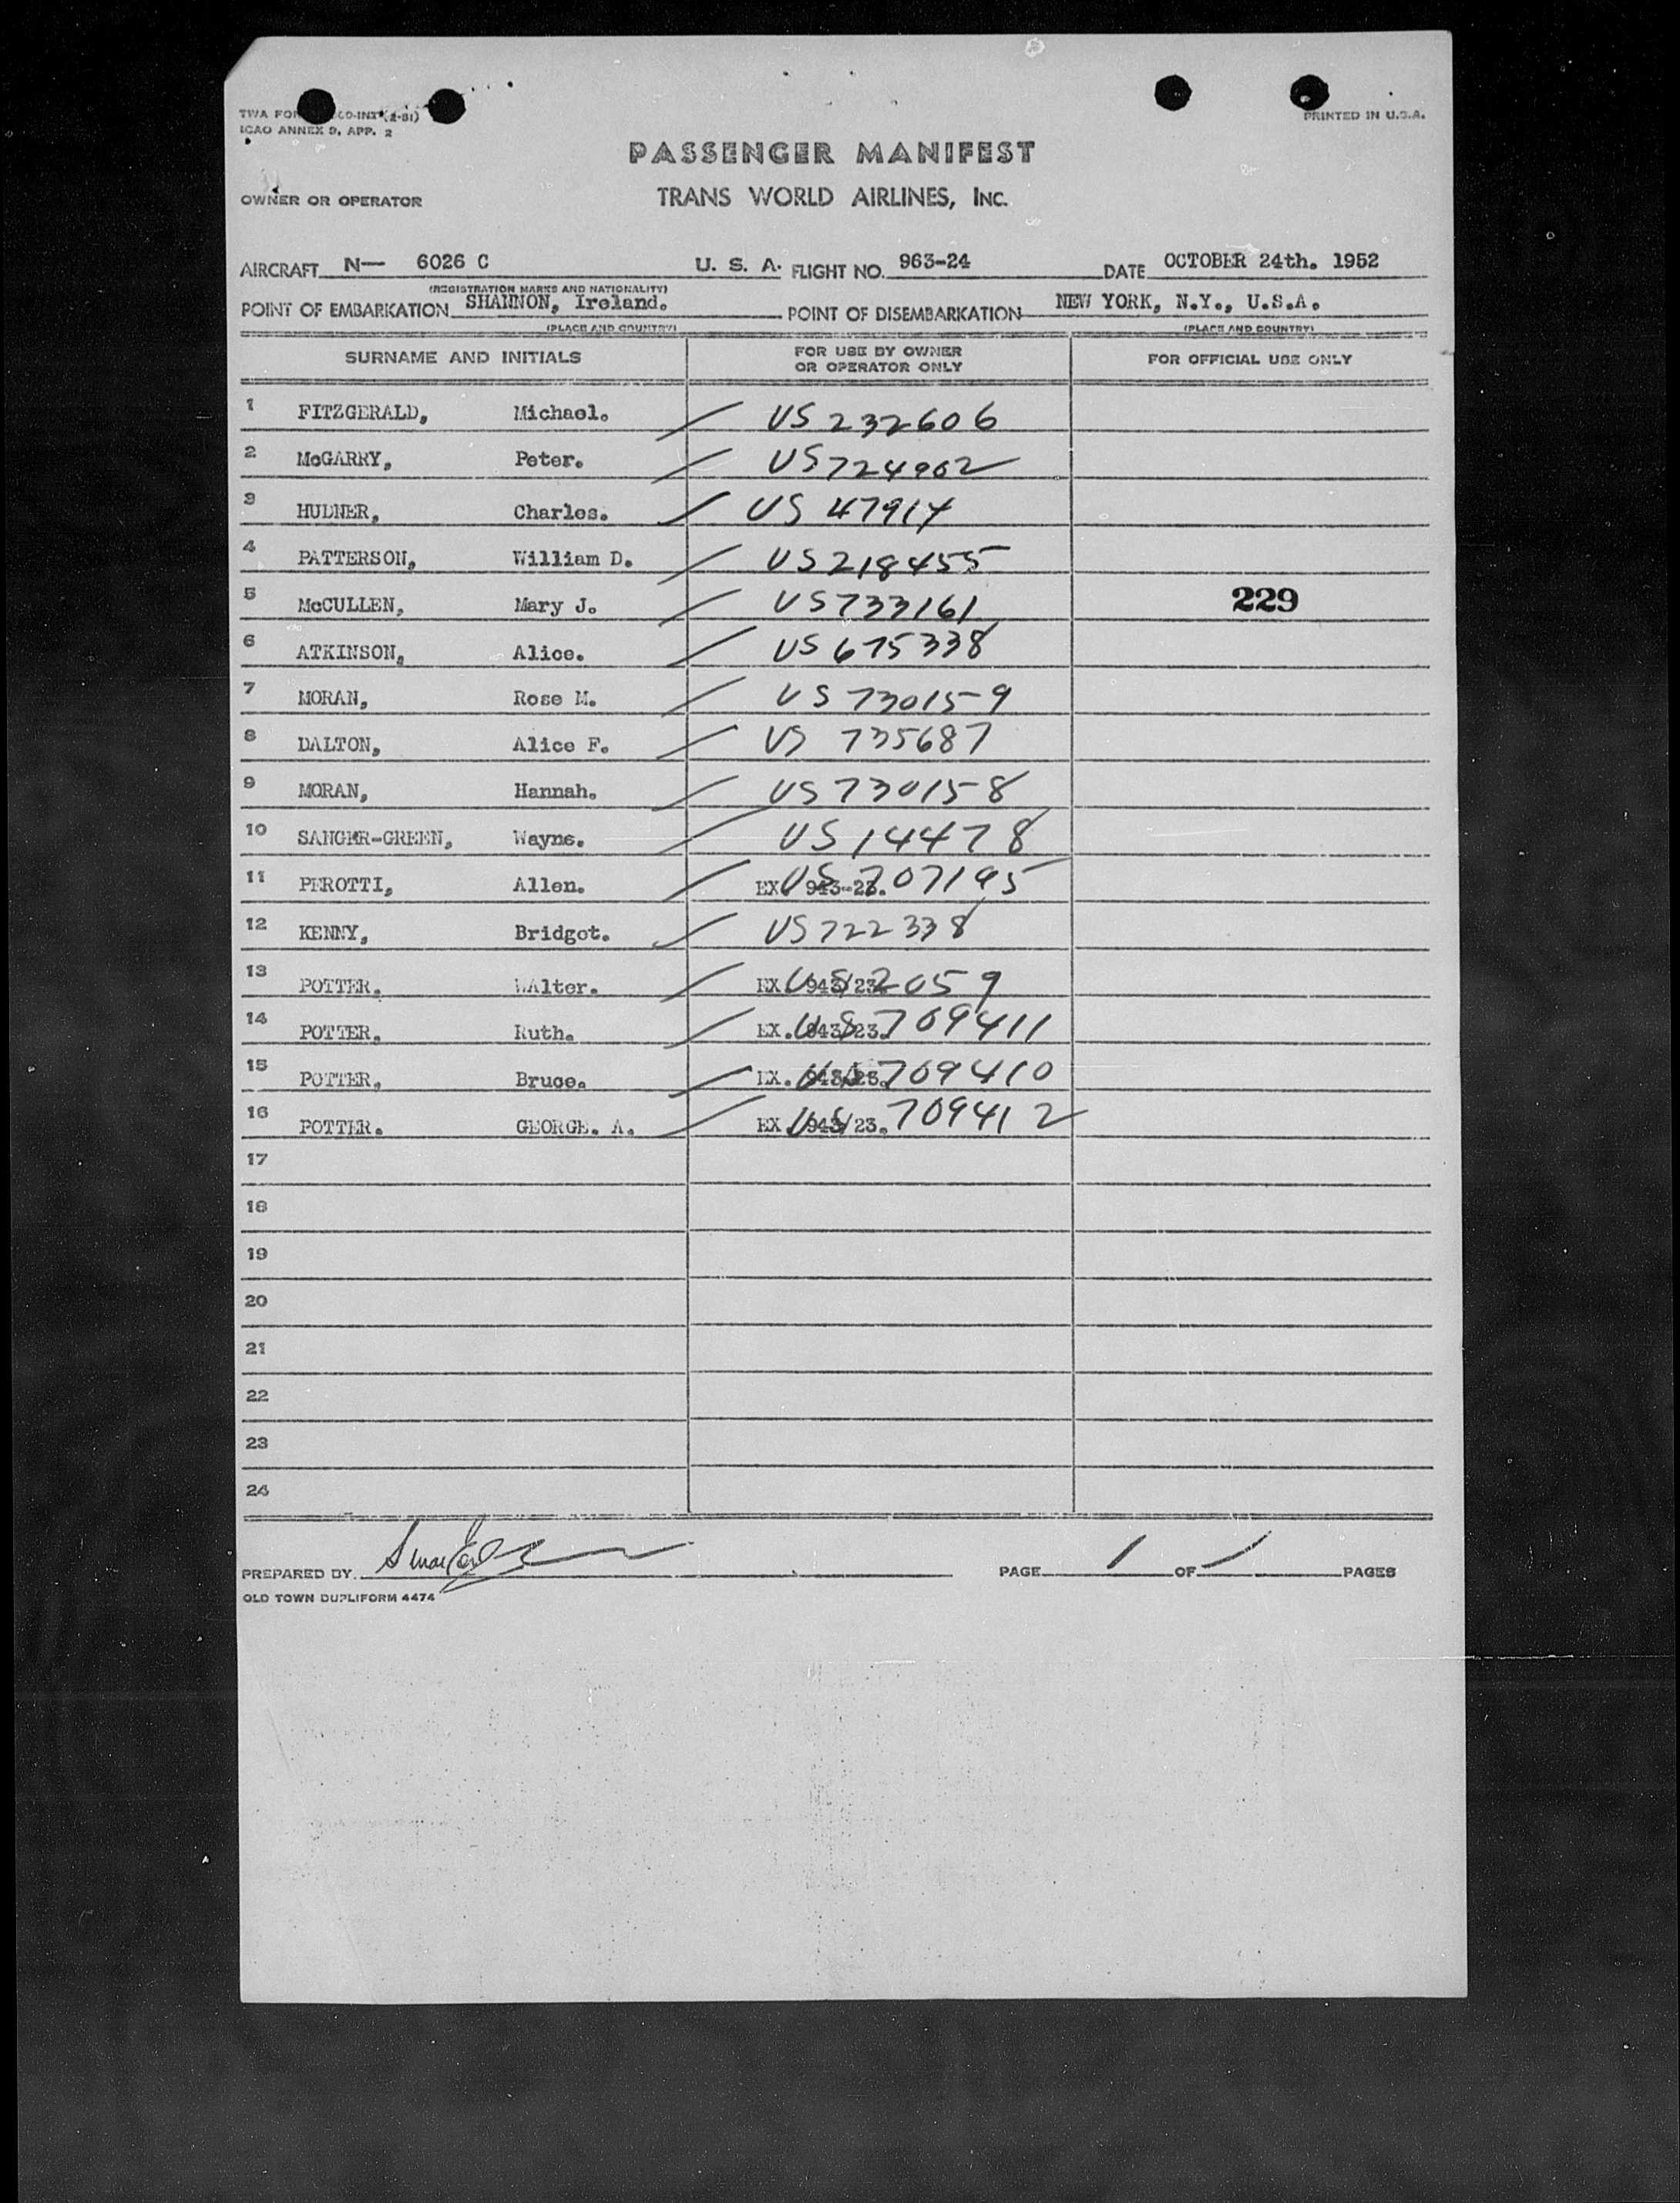 TWA FOR CO-INT (2-51)
ICAO ANNEX 9, APP. 2
PRINTED IN U.S.A.
PASSENGER MANIFEST
OWNER OR OPERATOR TRANS WORLD AIRLINES, INC.
AIRCRAFT N— 6026 C U. S. A. FLIGHT NO. 963-24 DATE OCTOBER 24th. 1952
(REGISTRATION MARKS AND NATIONALITY)
POINT OF EMBARKATION SHANNON, Ireland. POINT OF DISEMBARKATION NEW YORK, N.Y., U.S.A.
(PLACE AND COUNTRY) (PLACE AND COUNTRY)
SURNAME AND INITIALS FOR USE BY OWNER OR OPERATOR ONLY FOR OFFICIAL USE ONLY
1 FITZGERALD, Michael. US 232606
2 McGARRY, Peter. US724902
3 HULNER, Charles. US 47914
4 PATTERSON, William D. US218455
5 McCULLEN, Mary J. US733161 229
6 ATKINSON, Alice. US 675338
7 MORAN, Rose M. US 730159
8 DALTON, Alice F. US 735687
9 MORAN, Hannah. US730158
10 SANGER-GREEN, Wayne. US 14478
11 PEROTTI, Allen. EX. 943-23. US 707195
12 KENNY, Bridget. US722338
13 POTTER. WAlter. EX. 943/23. US 2059
14 POTTER. Ruth. EX. 943/23. US 709411
15 POTTER, Bruce. EX. 943/23. US 709410
16 POTTER. GEORGE. A. EX. 943/23. US 709412
17
18
19
20
21
22
23
24
PREPARED BY PAGE 1 OF 1 PAGES
OLD TOWN DUPLIFORM 4474